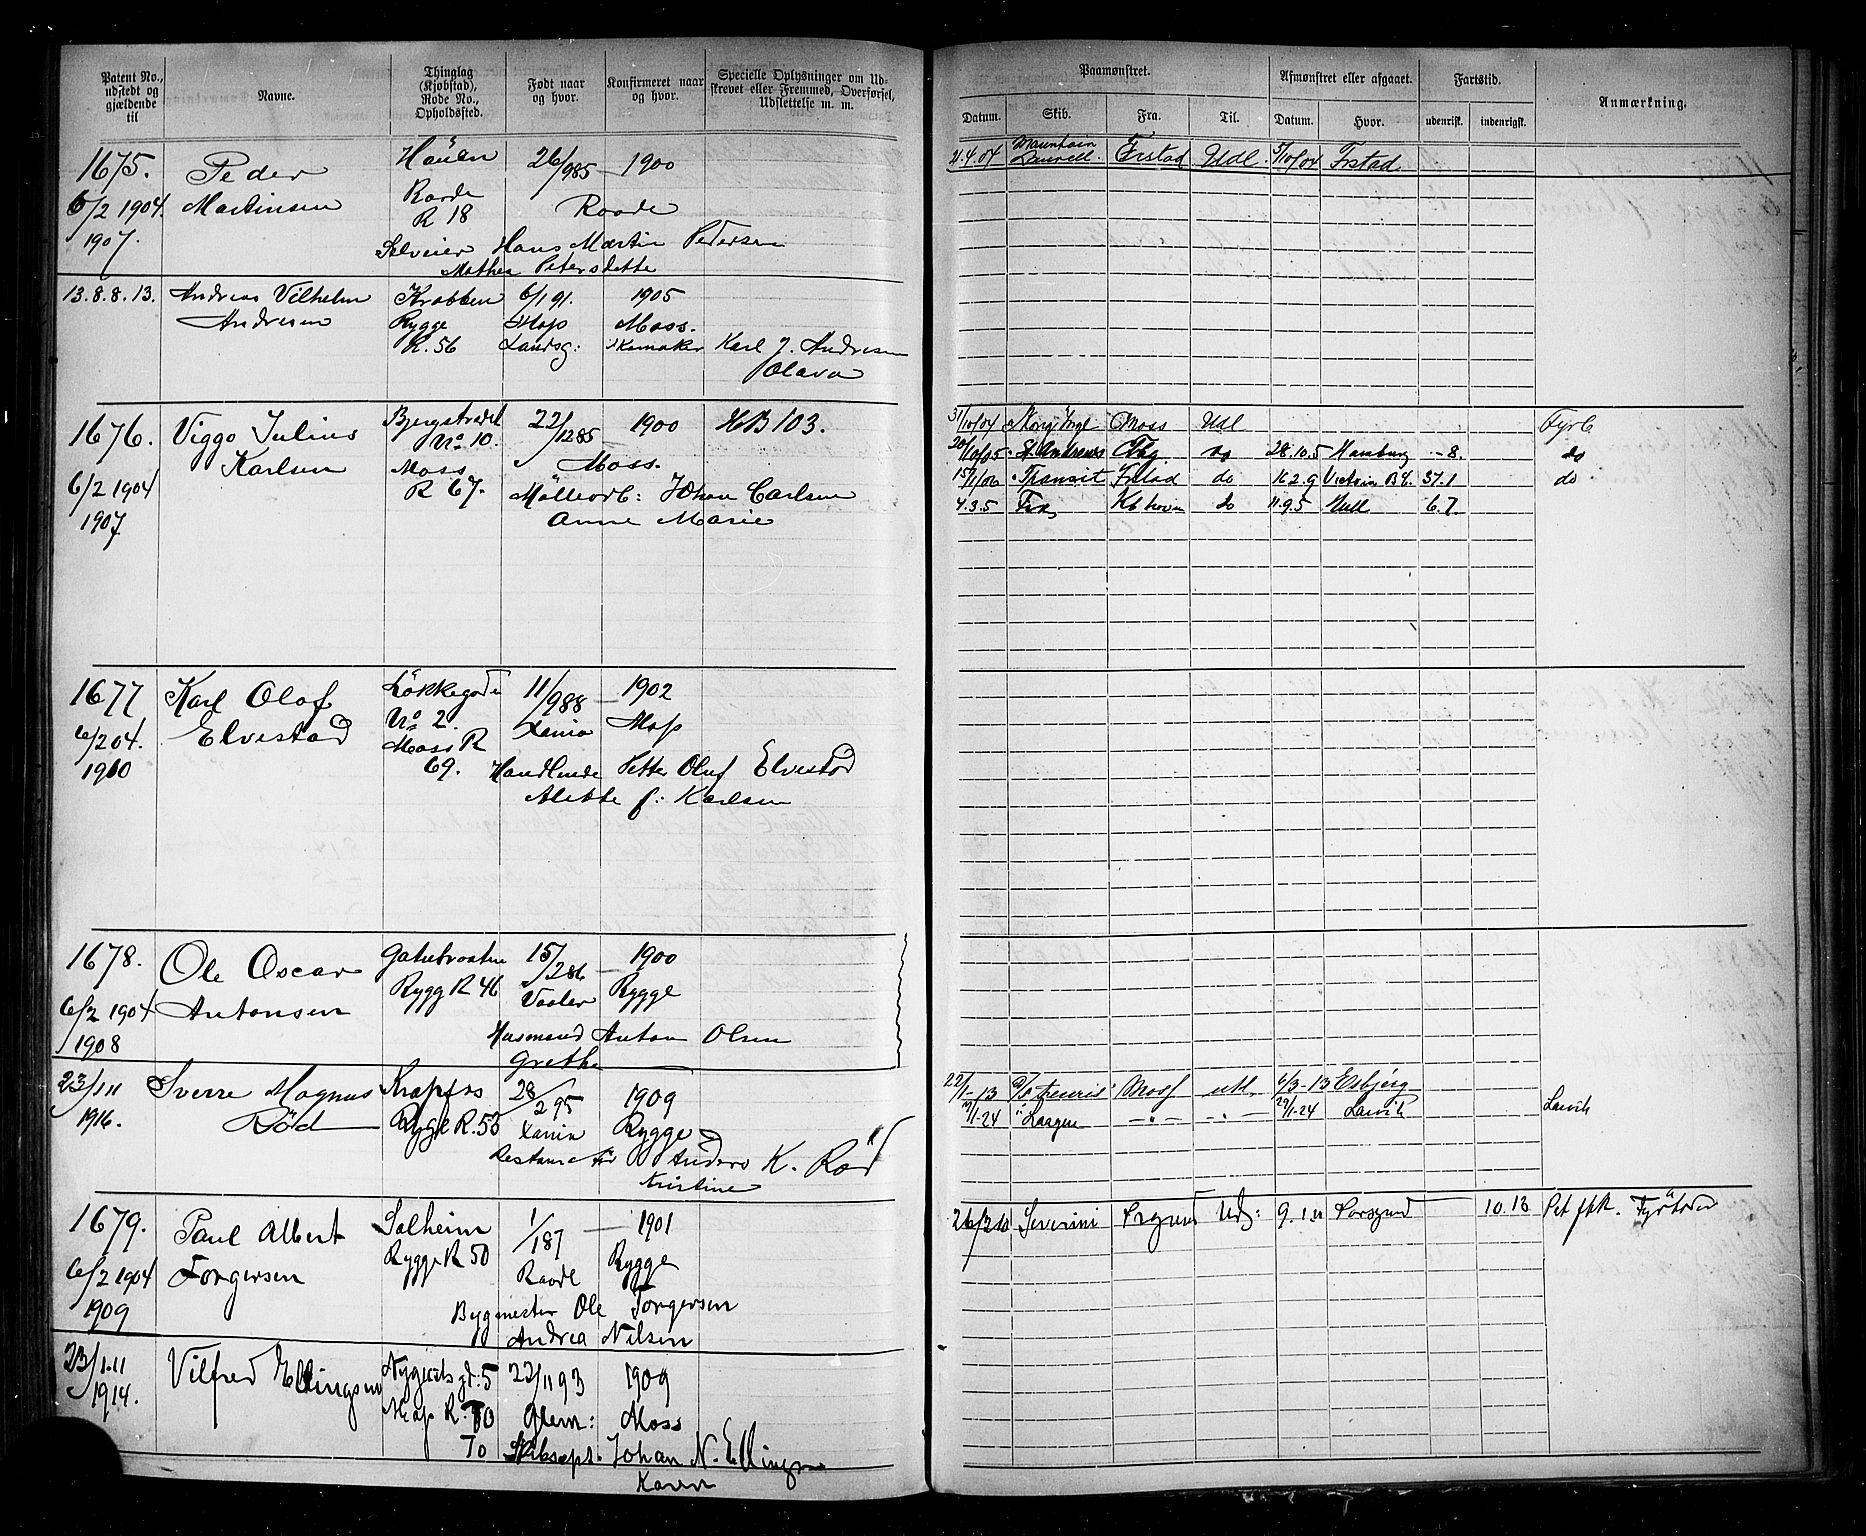 Patent No., udstedt og gjældende til
Navne.
Thinglag (Kjøbstad), Rode No., Opholdssted.
Født naar og hvor.
Konfirmeret naar og hvor.
Specielle Oplysninger om Udskrevet eller Fremmed, Overførsel, Udslettelse m. m.
Paamønstret.
Afmønstret eller afgaaet.
Fartstid.
Anmærkning.
Datum. Skib. Fra. Til. Datum. Hvor. udenrigsk. indenrigsk.
1675. Peder Martinsen
6/2 1904. 1907.
Raade R 18
26/9 85 — 1900
Raade
Selveier Hans Martin Pedersen
Mathea Petersdatte
21.4.04 Mountain Laurell. Frstad Udl 5/10/04 Frstad
13.8.8.13. Andreas Vilhelm Andresen
Krabben Rygge R. 56
6/1 91. Moss Landsg:
1905 Moss.
Skomaker Karl J. Andresen
Olava
1676. Viggo Julius Karlsen
6/2 1904 1907
No 10. Moss R 67.
22/12 85 — 1900 HB 103.
Moss.
Möllearb: Johan Carlsen
Anne Marie
31/10/04 Moss Udl Fyrb
20/10/05 St Andrews Fhg do 28.10.5 Hamburg - 8. do
15/1/06 Transit Frstad do 16 2.9 Victoria B 4. 37.1 do
4.3.5 Kbhavn do 11.9.5 Hull 6.7.
1677 Karl Olaf Elvestad
6/2 04. 1910
Løkkegaden No 2 Moss R 69.
11/9 88 — 1902
Xania Moss
Handlende Petter Oluf Elvestad
Alette f: Karlsen
1678. Ole Oscar Antonsen
6/2 1904 1908
Rygg R 46
15/2 86 — 1900
Vaaler Rygge
Husmand Anton Olsen
Grethe
23/1 11 1916. Sverre Magnus Röd
Krapfos Rygge R. 53
28/2 95 1909
Xania Rygge
Restauratör Anders K. Röd
Kristine
22/1-13 Moss utl. 6/3-13 Esbjerg
1-24 " Laagen — " — — " — 29/1-24 Larvik Larvik
1679. Paul Albert Torgersen
6/2 1904 1909
Solheim Rygge R 50
1/1 87 — 1901
Raade Rygge
Bygmester Ole Torgersen
Andrea Nilsen
26/2 10 Severini Prgrund Udl: 9.1.11 Porsgrund 10.13 Fyrböder
23/1.11 1914. Vilfred Ellingsen
gt: 5 Moss R. 70
70
22/11 93 1909
Glem: Moss
Skibscpt. Johan N. Ellingsen
Karen